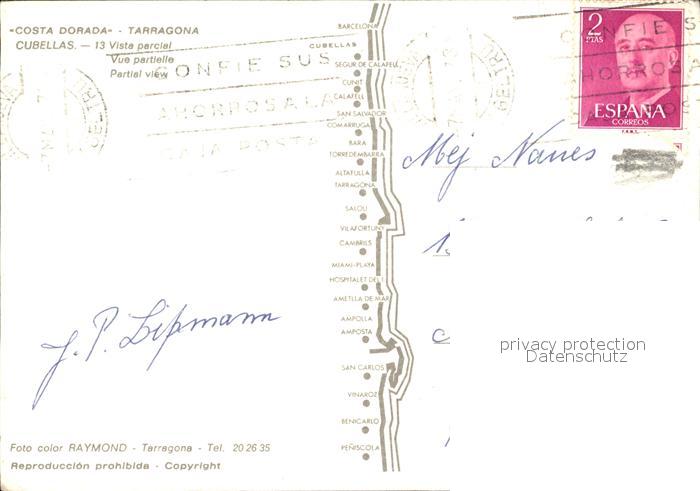 "COSTA DORADA" - TARRAGONA
CUBELLAS. — 13 Vista parcial
Vue partielle
Partial view
CONFIE SUS
AHORROS A LA
POSTA
BARCELONA
CUBELLAS
SEGUR DE CALAFELL
CUNIT
CALAFELL
SAN SALVADOR
COMARRUGA
BARA
TORREDEMBARRA
ALTAFULLA
TARRAGONA
SALOU
VILAFORTUNY
CAMBRILS
MIAMI-PLAYA
HOSPITALET DEL I.
AMETLLA DE MAR
AMPOLLA
AMPOSTA
SAN CARLOS
VINAROZ
BENICARLO
PEÑISCOLA
2
PTAS
CONFIE S
AHORROS
ESPAÑA
CORREOS
F.N.M.T.
Mej
privacy protection
Datenschutz
J. P. Lipmann
Foto color RAYMOND - Tarragona - Tel. 20 26 35
Reproducción prohibida - Copyright